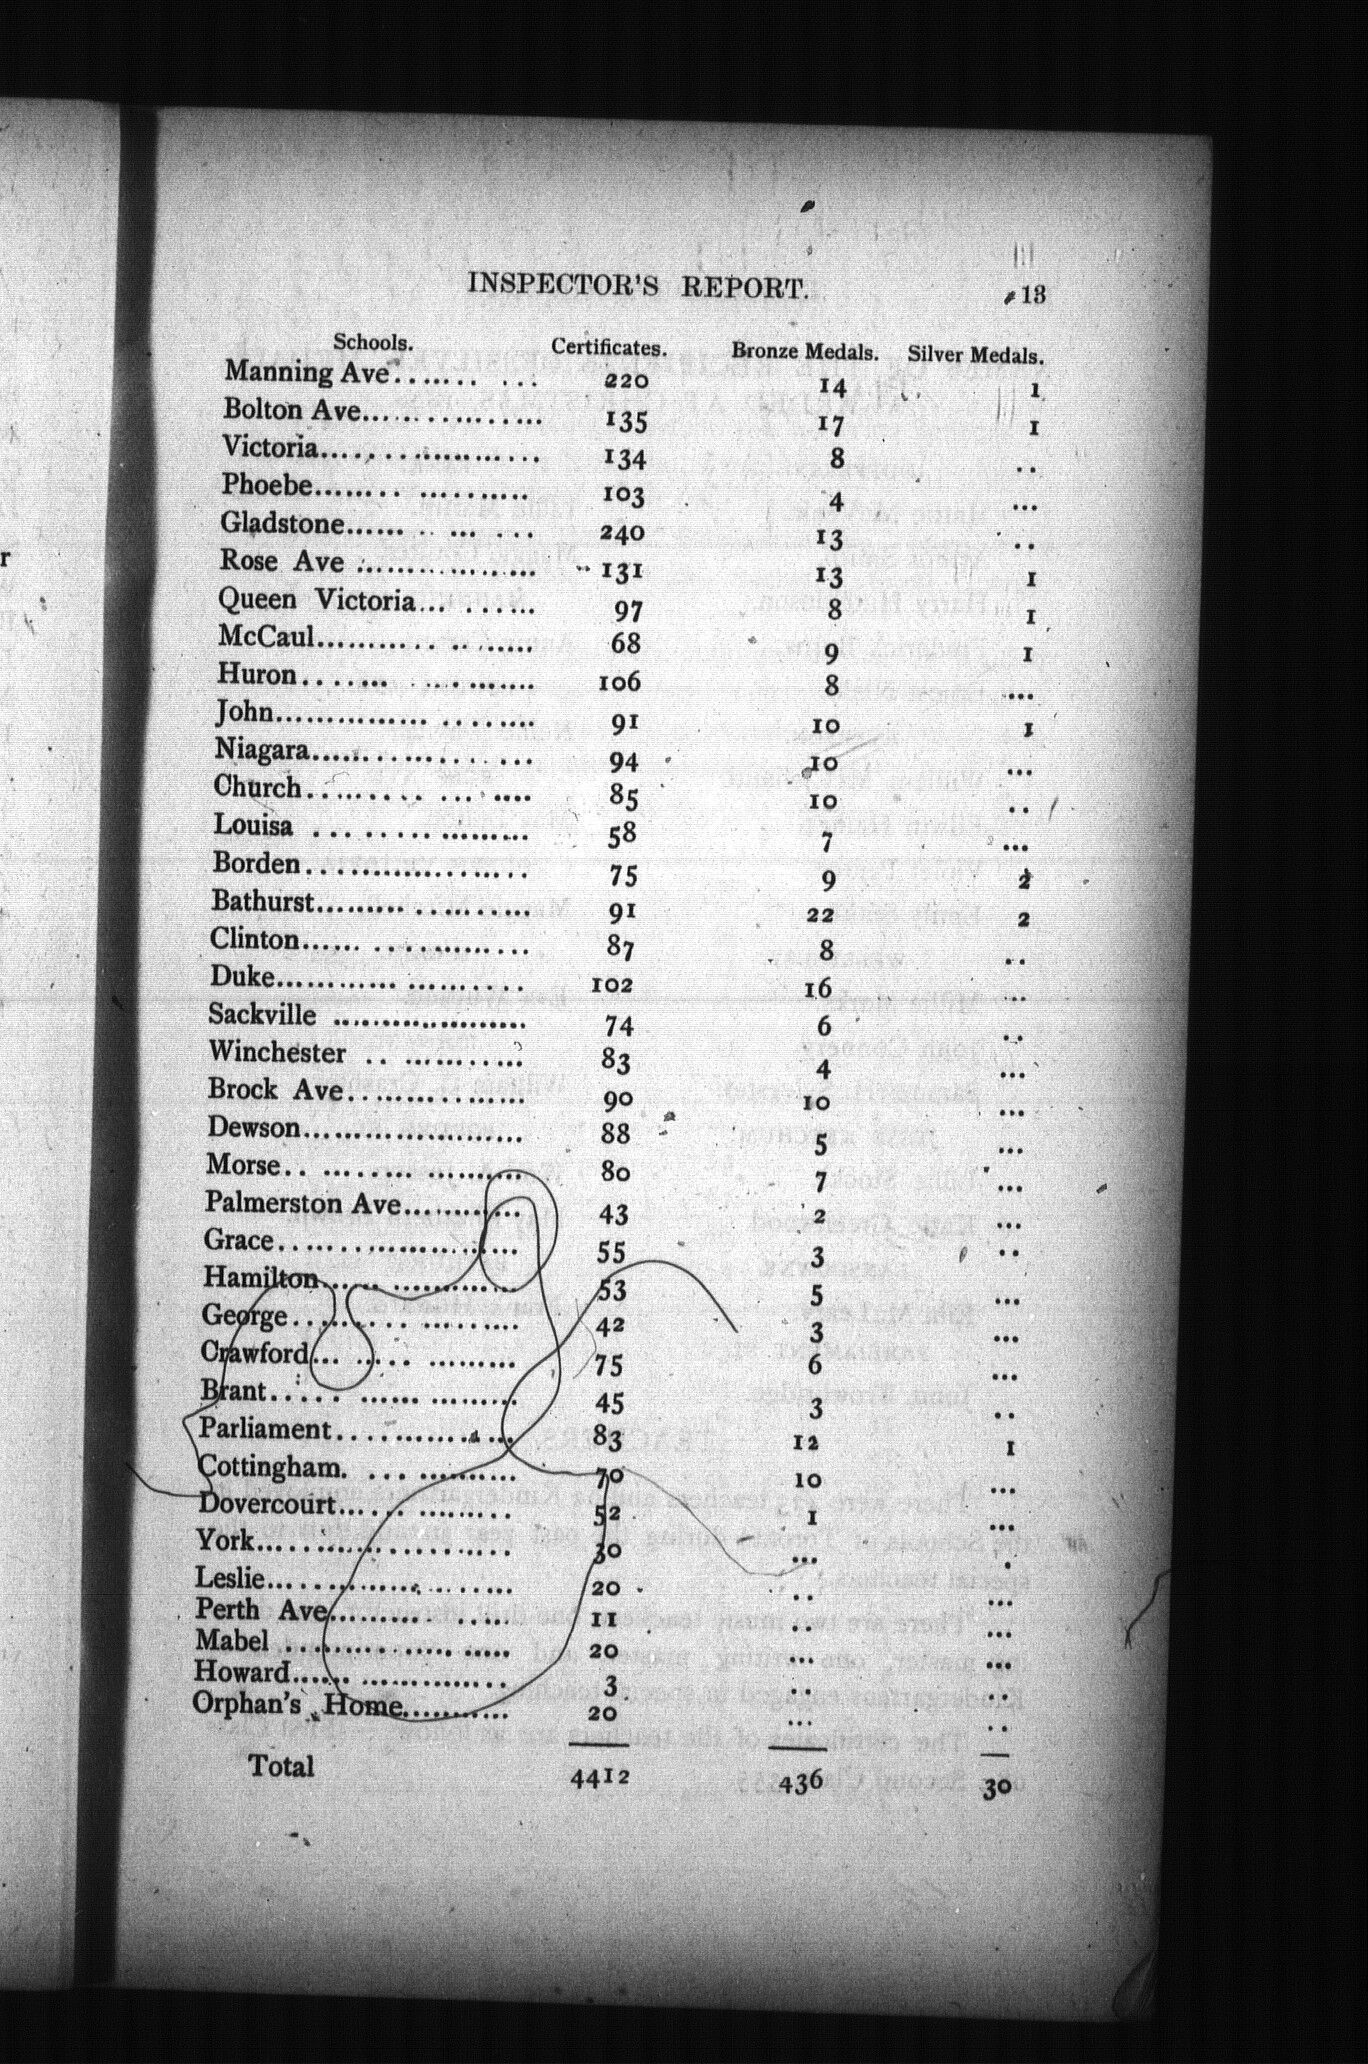 INSPECTOR'S REPORT. 13
Schools. Certificates. Bronze Medals. Silver Medals.
Manning Ave......... ... 220 14 1
Bolton Ave.................. 135 17 1
Victoria..................... 134 8 ..
Phoebe........ .......... 103 4 ...
Gladstone...... .. ... ... 240 13 ..
Rose Ave .................. 131 13 1
Queen Victoria... ...... 97 8 1
McCaul........... .. ...... 68 9 1
Huron........ ........... 106 8 ...
John............... ........ 91 10 1
Niagara................ ... 94 10 ...
Church.......... ... .... 85 10 ..
Louisa ................. 58 7 ...
Borden.................... 75 9 2
Bathurst......... .......... 91 22 2
Clinton...... ............ 87 8 ..
Duke............ ......... 102 16 ...
Sackville ................... 74 6 ..
Winchester .. ........... 83 4 ...
Brock Ave................ 90 10 ...
Dewson..................... 88 5 ...
Morse.. ................. 80 7 ...
Palmerston Ave............ 43 2 ...
Grace...................... 55 3 ..
Hamilton...... ............ 53 5 ...
George......... ......... 42 3 ...
Crawford... ..... ......... 75 6 ...
Brant..... ...... ......... 45 3 ..
Parliament................. 83 12 1
Cottingham. ... .......... 70 10 ...
Dovercourt....... ......... 52 1 ...
York........................ 30 ... .
Leslie.............. ...... 20 .. ...
Perth Ave.......... ...... 11 ... ...
Mabel ........... .... ..... 20 ... ...
Howard...... .............. 3 .. ..
Orphan's Home........... 20 ... ..
Total 4412 436 30